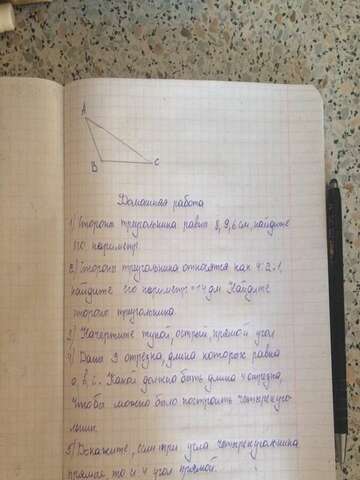 A
B
C
Домашняя работа
1) Стороны треугольника равны 8, 9, 6 см, найдите
его периметр
2) Стороны треугольника относятся как 4:2:1,
найдите его периметр = 14 дм. Найдите
стороно треугольника
3) Начертите тупой, острый, прямой угол
4) Дано 3 отрезка, длина которох равна
a, b, c. Какой должно быть длина 4 отрезка,
чтобы можно было построить четырехуго-
льник
5) Докажите, если три угла четырехугольника
прямые, то и 4 угол прямой.